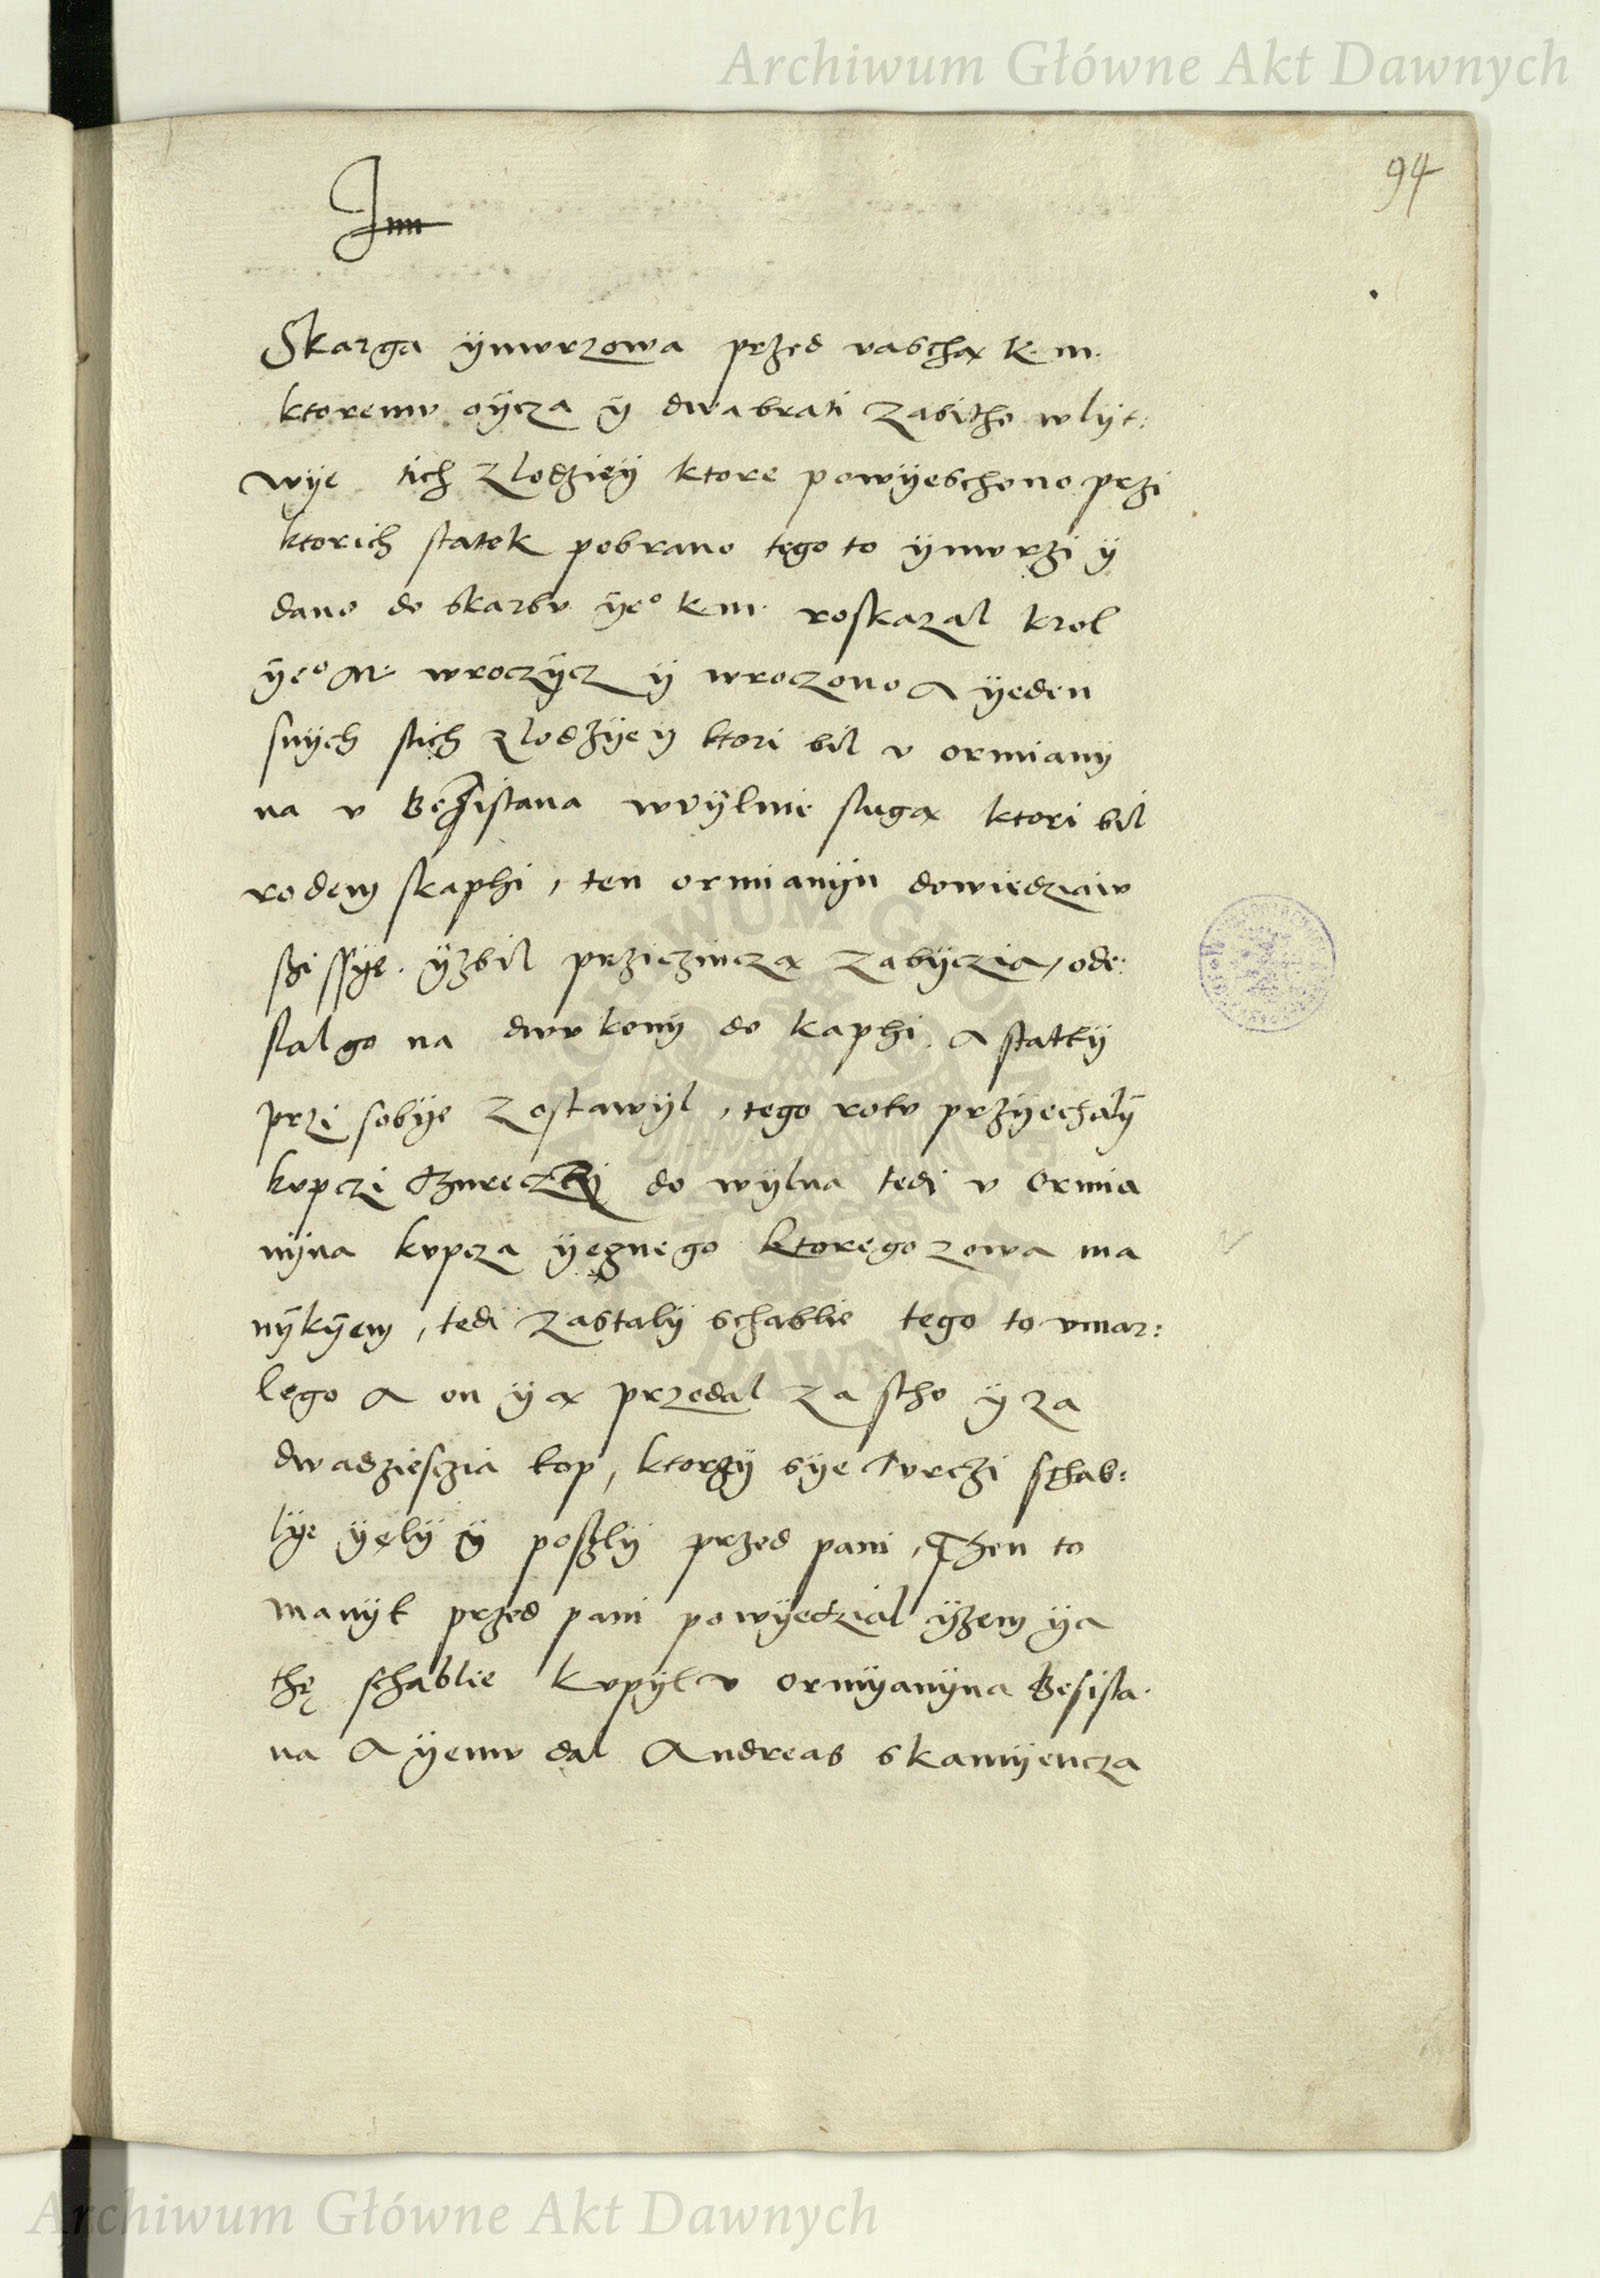 Archiwum Główne Akt Dawnych
94
Jnn
Skarga ÿmvrzowa przed vaschą k. m.
ktoremv oÿcza ÿ dwa brati zabitho w lÿt:
wÿe tich zlodzieÿ ktore powÿeschono przi
ktorich statek pobrano tego to ÿmvrzi ÿ
dano do skarbv ÿe° k. m. roskazal krol
ÿe° M. wroczÿcz ÿ wroczono A ÿeden
snÿch stich zlodzÿeÿ ktori bil v ormianÿ
na v Besistana wvÿlnie slugą ktori bil
rodem skaphi, ten ormianÿn dowiedziaw
szi ssÿe ÿzbil przicznczą zabÿczia, ode:
slal go na dwv konÿ do kaphi A statkÿ
przi sobÿe zostawÿl, tego rokv przÿechalÿ
kvpczi do wÿlna tedi v ormia
nÿna kvpcza ÿednego ktorego zowa ma
nÿkÿem, tedi zastalÿ schablie tego to vmar:
lego A on ÿą przedal za stho ÿ za
dwadziesczia kop, ktorzÿ sÿe Tvrczi schab:
lÿe ÿęlÿ ÿ poszlÿ przed pani, Then to
manÿk przed pani powÿedzial ÿzem ÿa
thę schablie kvpÿl v ormÿanÿna Besista
na A ÿemv dal Andreas skamÿencza
Archiwum Główne Akt Dawnych